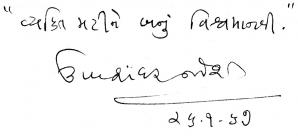 "વ્યક્તિ મટીને બનું વિશ્વમાનવી."
ઉમાશંકર જોશી